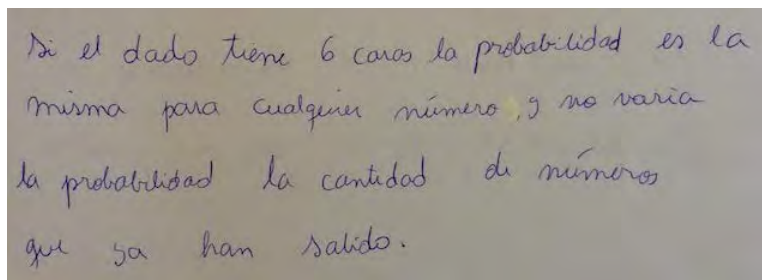 Si el dado tiene 6 caras la probabilidad es la
misma para cualquier número, y no varia
la probabilidad la cantidad de números
que ya han salido.